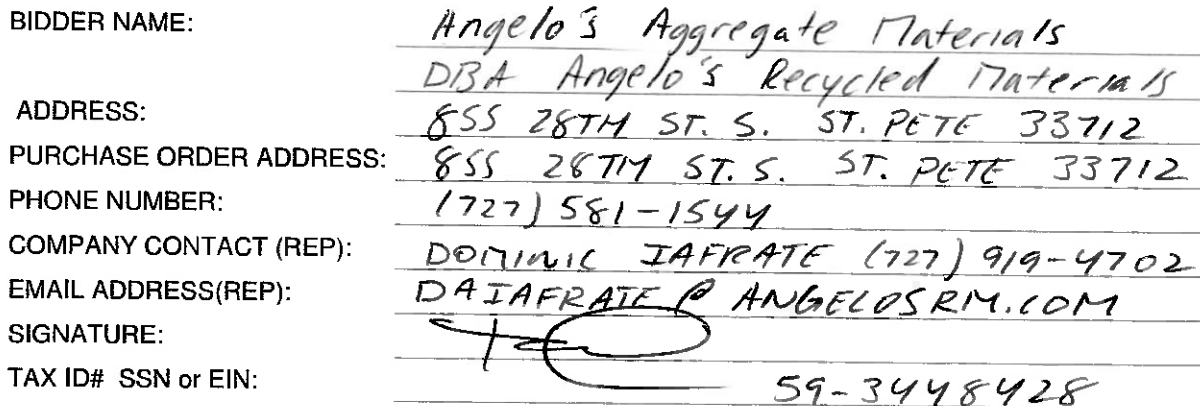 BIDDER NAME: Angelo's Aggregate Materials
DBA Angelo's Recycled Materials
ADDRESS: 855 28TH ST. S. ST. PETE 33712
PURCHASE ORDER ADDRESS: 855 28TH ST. S. ST. PETE 33712
PHONE NUMBER: (727) 581-1544
COMPANY CONTACT (REP): DOMINIC IAFRATE (727) 919-4702
EMAIL ADDRESS(REP): DAIAFRATE@ANGELOSRM.COM
SIGNATURE:
TAX ID# SSN or EIN: 59-3448428